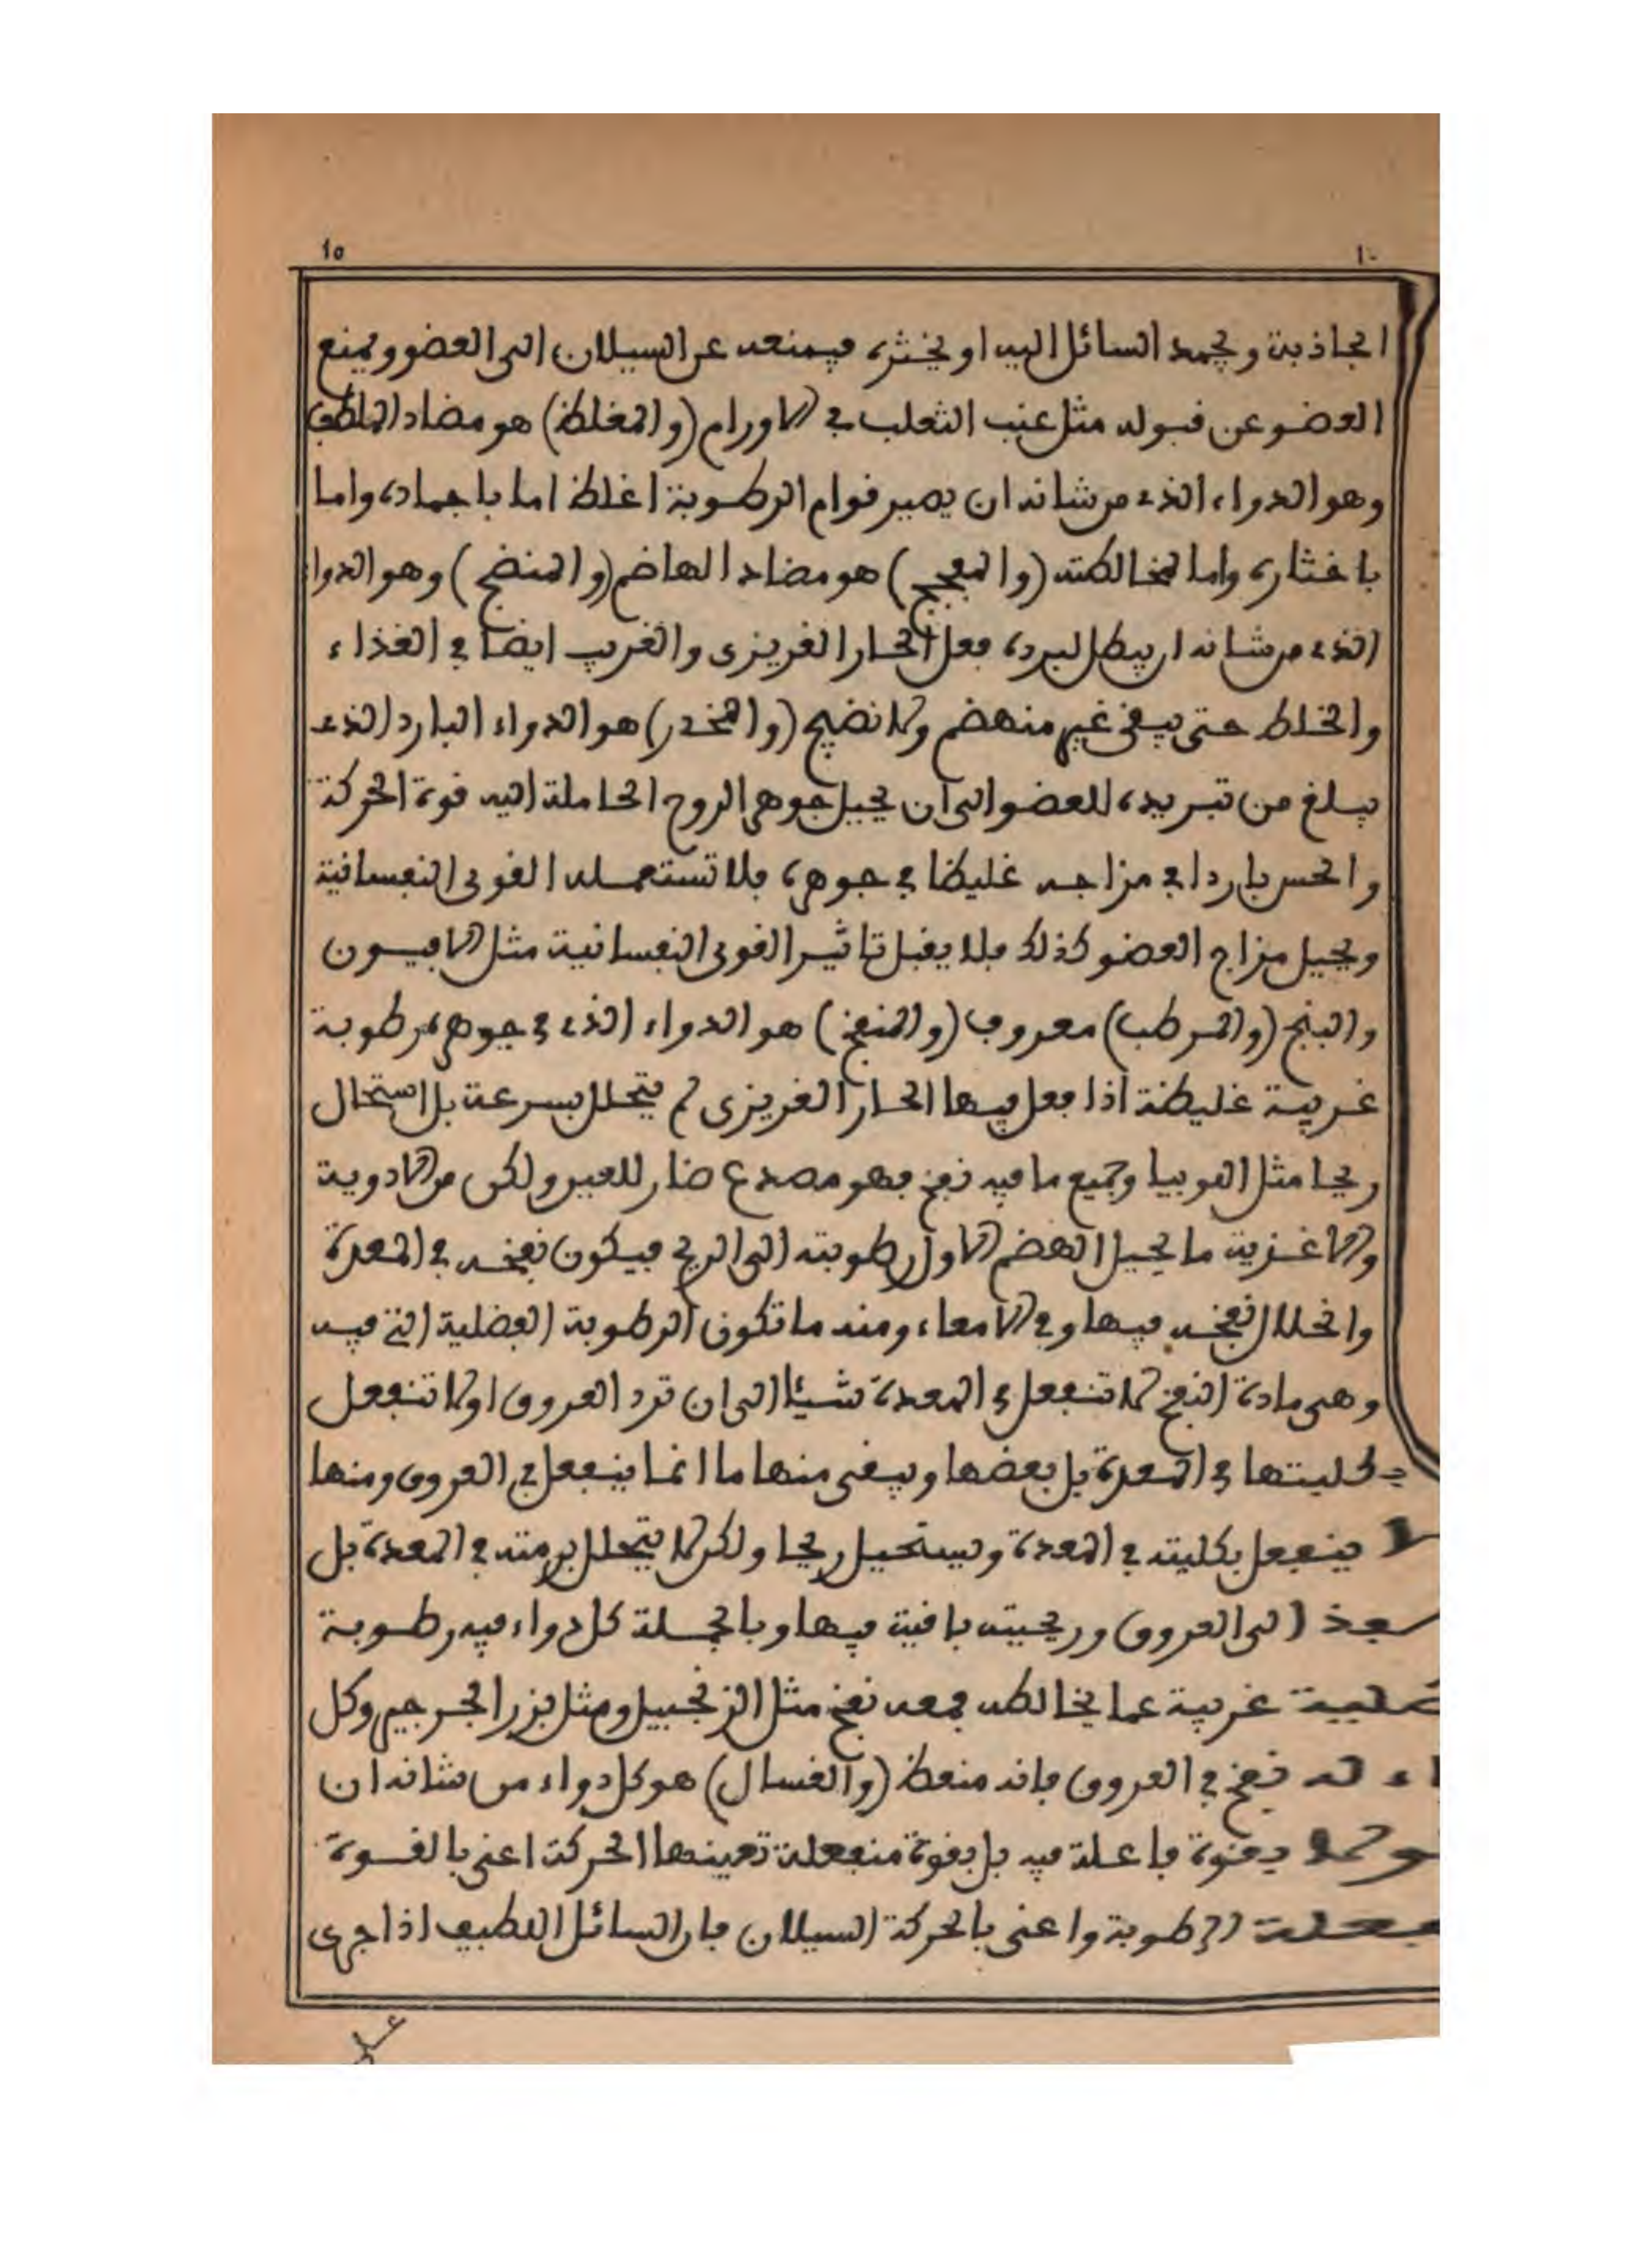 ١٥
الجاذبة ويجمد السائل اليه او يخثره فيمنعه عن السيلان الى العضو ويمنع
العضو عن قبوله مثل عنب الثعلب في الاورام (والمغلظ) هو مضاد الملطف
وهو الدواء الذى من شانه ان يصير قوام الرطوبة اغلظ اما باجماده واما
باخثاره واما لمخالطته (والمفجج) هو مضاد الهاضم (والمنضج) وهو الدواء
الذى من شانه ان يبطل لبرده فعل الحار الغريزى والغريب ايضا في الغذاء
والخلط حتى يبقى غير منهضم ولا نضيج (والمخدر) هو الدواء البارد الذى
يبلغ من تبريده للعضو الى ان يحيل جوهر الروح الحاملة اليه قوة الحركة
والحس باردا في مزاجه غليظا في جوهره فلا تستعمله القوى النفسانية
ويحيل مزاج العضو كذلك فلا يقبل تاثير القوى النفسانية مثل الافيون
والبنج (والمرطب) معروف (والمنفخ) هو الدواء الذى في جوهره رطوبة
غريبة غليظة اذا فعل فيها الحار الغريزى لم يتحلل بسرعة بل استحال
ريحا مثل اللوبيا وجميع ما فيه نفخ فهو مصدع ضار للعين ولكن من الادوية
والاغذية ما يحيل الهضم الاول رطوبته الى الريح فيكون نفخه في المعدة
وانحلال نفخه فيها وفي الامعاء ومنه ما تكون الرطوبة الفضلية التى فيه
وهى مادة النفخ لا تنفعل في المعدة شيئا الى ان ترد العروق او لا تنفعل
بكليتها في المعدة بل بعضها ويبقى منها ما انما ينفعل في العروق ومنها
ينفعل بكليته في المعدة ويستحيل ريحا ولكن لا يتحلل برمته في المعدة بل
الى العروق وريحيته باقية فيها وبالجملة كل دواء فيه رطوبة
غريبة عما يخالطه فمعه نفخ مثل الزنجبيل ومثل بزر الجرجير وكل
له نفخ في العروق فانه منعظ (والغسال) هو كل دواء من شانه ان
بقوة فاعلة فيه بل بقوة منفعلة تعينها الحركة اعنى بالقوة
الرطوبة واعنى بالحركة السيلان فان السائل اللطيف اذا جرى